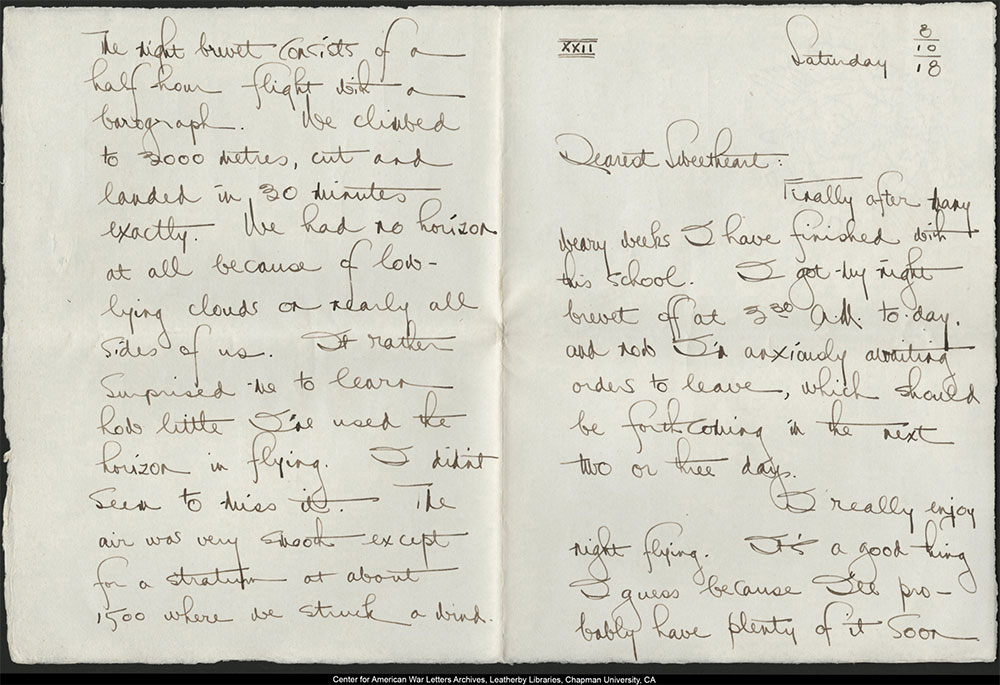 The night brevet consists of a
half hour flight with a
barograph. We climbed
to 3000 metres, cut and
landed in 30 minutes
exactly. We had no horizon
at all because of low-
lying clouds on nearly all
sides of us. It rather
surprised me to learn
how little I've used the
horizon in flying. I didn't
seem to miss it. The
air was very smooth except
for a stratum at about
1500 where we struck a wind.
XXII
Saturday
8
10
18
Dearest Sweetheart:
Finally after many
weary weeks I have finished with
this school. I got my night
brevet off at 3 30 A.M. to-day.
and now I'm anxiously awaiting
orders to leave, which should
be forthcoming in the next
two or three days.
I really enjoy
night flying. It's a good thing
I guess because I'll pro-
bably have plenty of it soon
Center for American War Letters Archives, Leatherby Libraries, Chapman University, CA